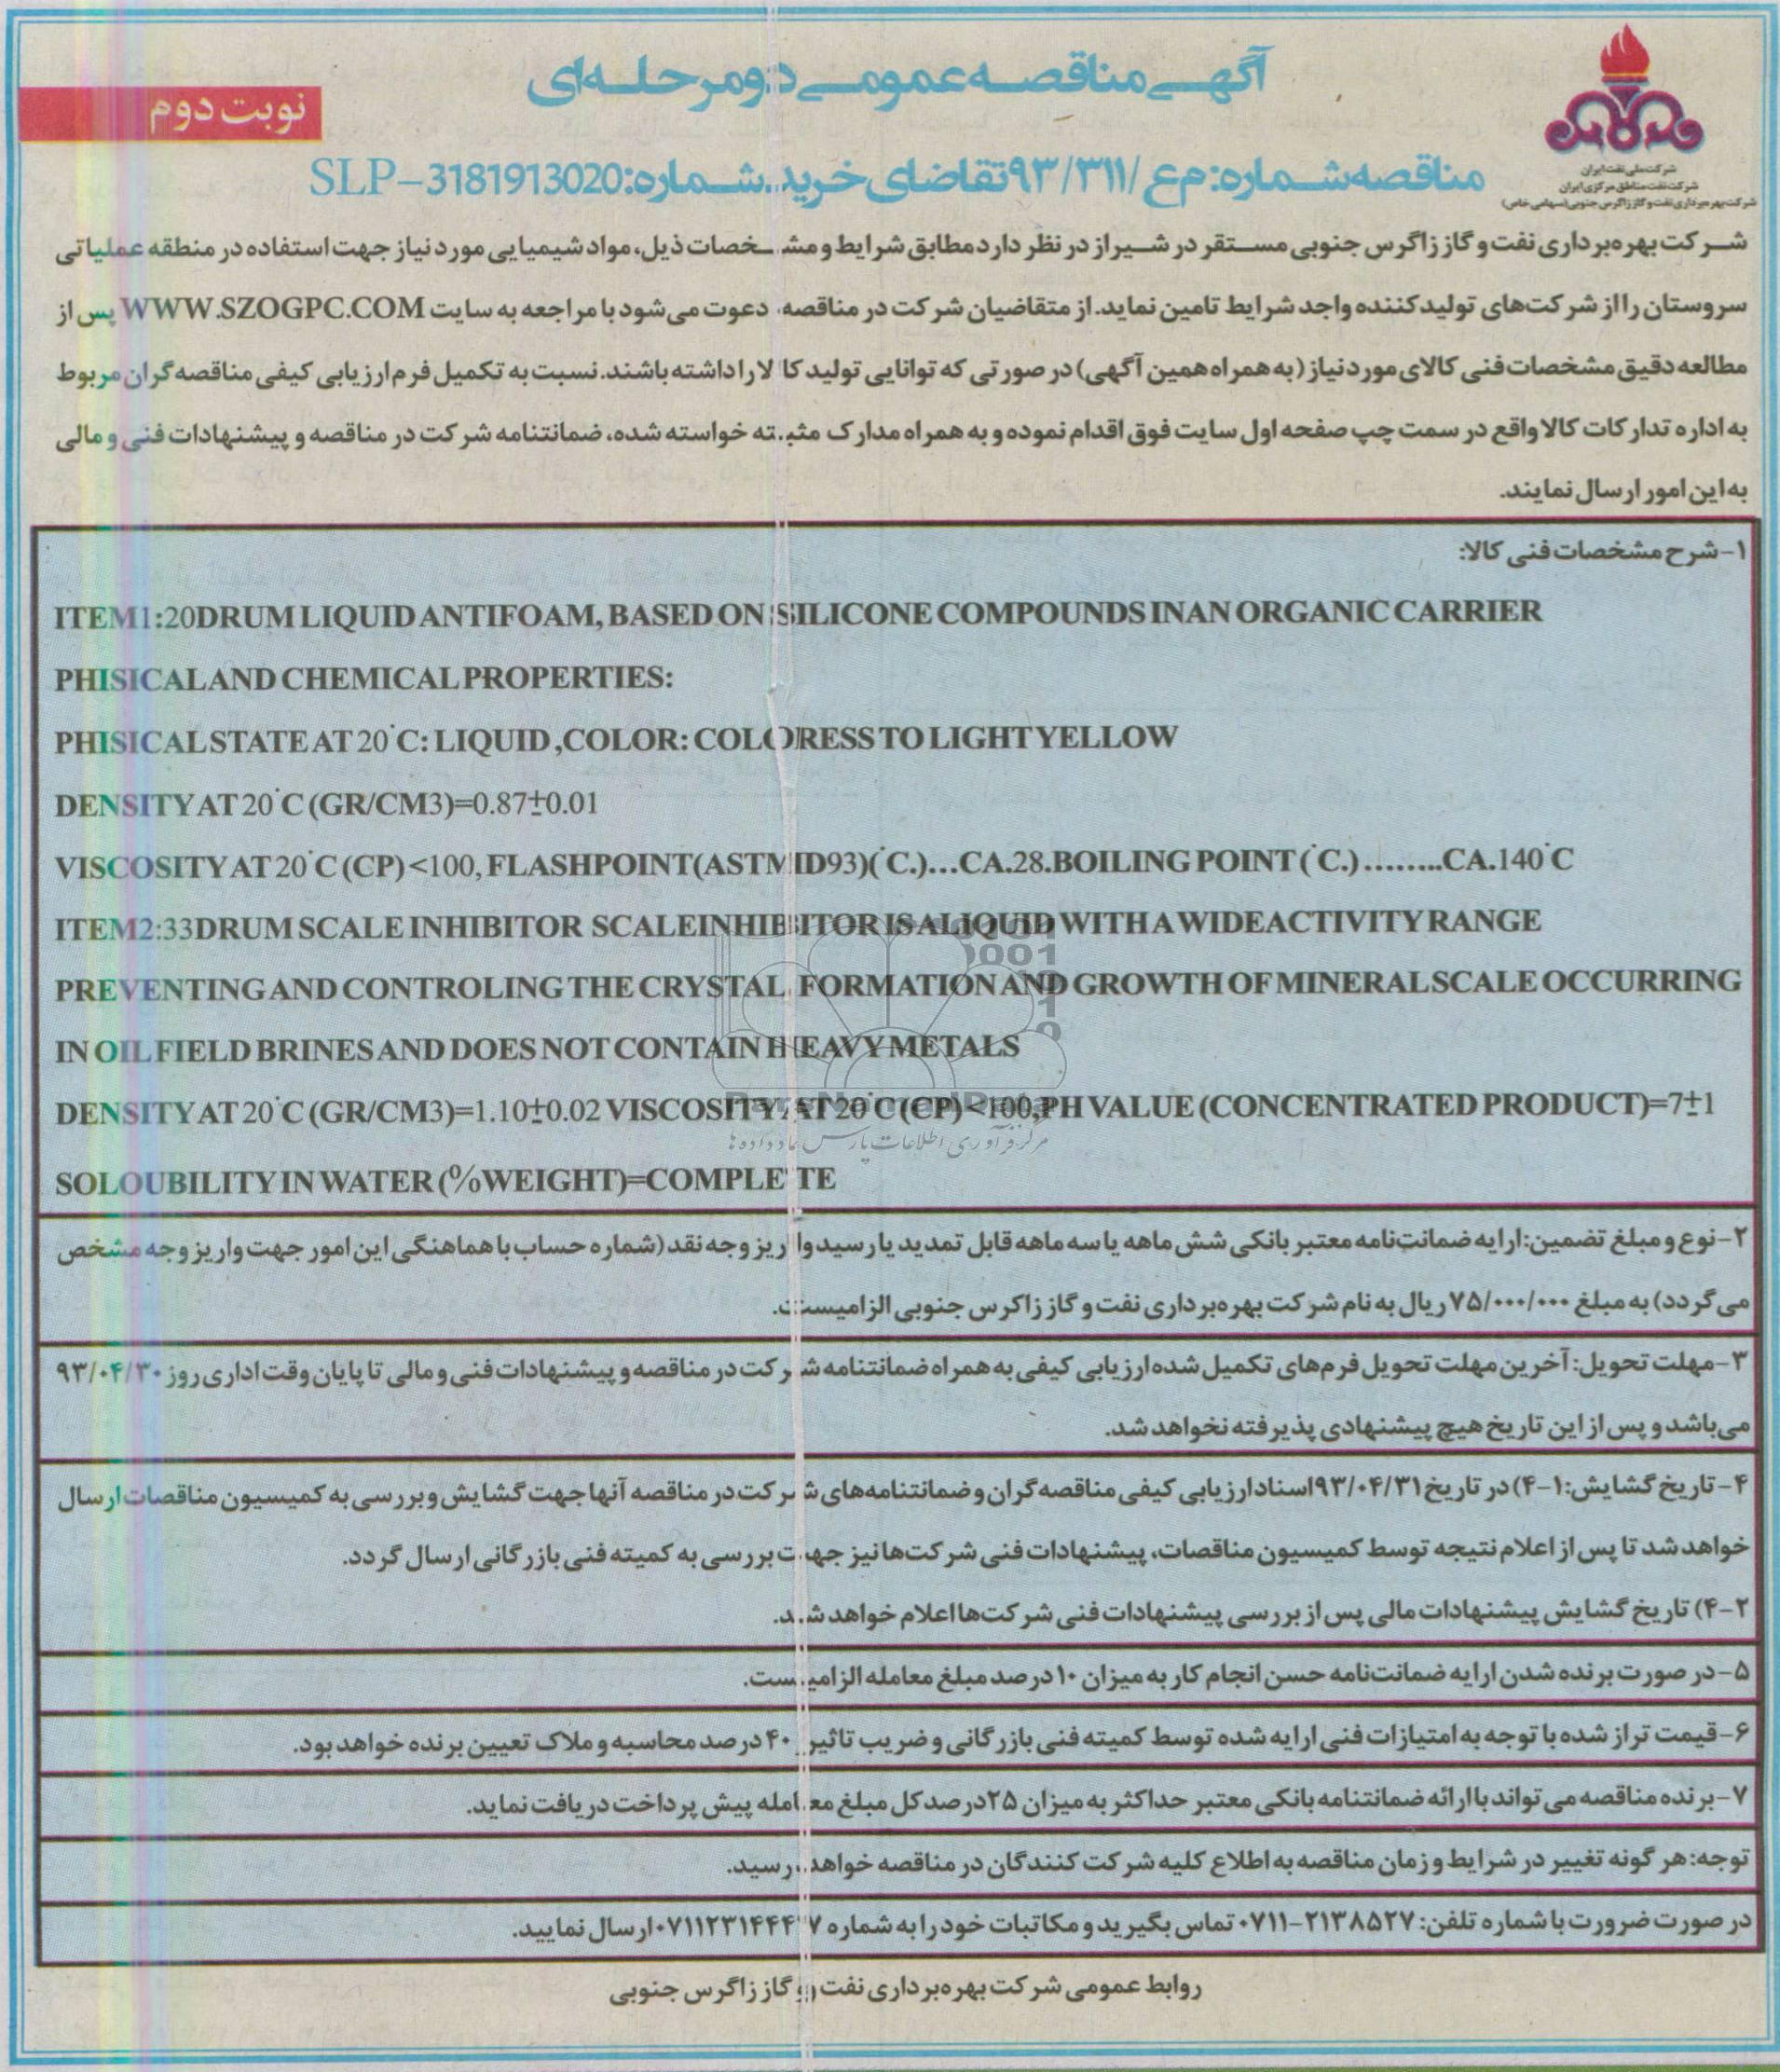 آگهی مناقصه عمومی دو مرحله‌ای
نوبت دوم
شرکت ملی نفت ایران
شرکت نفت مناطق مرکزی ایران
شرکت بهره‌برداری نفت و گاز زاگرس جنوبی (سهامی خاص)
مناقصه شماره: م ع /۹۳/۳۱۱ تقاضای خرید شماره: SLP-3181913020
شرکت بهره‌برداری نفت و گاز زاگرس جنوبی مستقر در شیراز در نظر دارد مطابق شرایط و مشخصات ذیل، مواد شیمیایی مورد نیاز جهت استفاده در منطقه عملیاتی
سروستان را از شرکت‌های تولید کننده واجد شرایط تامین نماید. از متقاضیان شرکت در مناقصه، دعوت می‌شود با مراجعه به سایت WWW.SZOGPC.COM پس از
مطالعه دقیق مشخصات فنی کالای مورد نیاز (به همراه همین آگهی) در صورتی که توانایی تولید کالا را داشته باشند. نسبت به تکمیل فرم ارزیابی کیفی مناقصه‌گران مربوط
به اداره تدارکات کالا واقع در سمت چپ صفحه اول سایت فوق اقدام نموده و به همراه مدارک مثبته خواسته شده، ضمانتنامه شرکت در مناقصه و پیشنهادات فنی و مالی
به این امور ارسال نمایند.
۱-شرح مشخصات فنی کالا:
ITEM1:20DRUM LIQUID ANTIFOAM, BASED ON SILICONE COMPOUNDS IN AN ORGANIC CARRIER
PHISICAL AND CHEMICAL PROPERTIES:
PHISICAL STATE AT 20°C: LIQUID ,COLOR: COLORESS TO LIGHT YELLOW
DENSITY AT 20°C (GR/CM3)=0.87±0.01
VISCOSITY AT 20°C (CP) <100, FLASHPOINT(ASTM D93)(°C.)...CA.28.BOILING POINT (°C.) ........CA.140°C
ITEM2:33DRUM SCALE INHIBITOR SCALEINHIBITOR IS A LIQUID WITH A WIDE ACTIVITY RANGE
PREVENTING AND CONTROLING THE CRYSTAL FORMATION AND GROWTH OF MINERAL SCALE OCCURRING
IN OIL FIELD BRINES AND DOES NOT CONTAIN HEAVY METALS
DENSITY AT 20°C (GR/CM3)=1.10±0.02 VISCOSITY AT 20°C (CP)<100,PH VALUE (CONCENTRATED PRODUCT)=7±1
مرکز فرآوری اطلاعات پارس نماد داده ها
SOLOUBILITY IN WATER (%WEIGHT)=COMPLETE
۲-نوع و مبلغ تضمین: ارایه ضمانت‌نامه معتبر بانکی شش ماهه یا سه ماهه قابل تمدید یا رسید واریز وجه نقد (شماره حساب با هماهنگی این امور جهت واریز وجه مشخص
می گردد) به مبلغ ۷۵/۰۰۰/۰۰۰ ریال به نام شرکت بهره‌برداری نفت و گاز زاکرس جنوبی الزامیست.
۳-مهلت تحویل: آخرین مهلت تحویل فرم‌های تکمیل شده ارزیابی کیفی به همراه ضمانتنامه شرکت در مناقصه و پیشنهادات فنی و مالی تا پایان وقت اداری روز ۹۳/۰۴/۳۰
می‌باشد و پس از این تاریخ هیچ پیشنهادی پذیرفته نخواهد شد.
۴-تاریخ گشایش: ۴-۱) در تاریخ ۹۳/۰۴/۳۱ اسناد ارزیابی کیفی مناقصه‌گران و ضمانتنامه‌های شرکت در مناقصه آنها جهت گشایش و بررسی به کمیسیون مناقصات ارسال
خواهد شد تا پس از اعلام نتیجه توسط کمیسیون مناقصات، پیشنهادات فنی شرکت‌ها نیز جهت بررسی به کمیته فنی بازرگانی ارسال گردد.
۴-۲) تاریخ گشایش پیشنهادات مالی پس از بررسی پیشنهادات فنی شرکت‌ها اعلام خواهد شد.
۵-در صورت برنده شدن ارایه ضمانت‌نامه حسن انجام کار به میزان ۱۰ درصد مبلغ معامله الزامیست.
۶-قیمت تراز شده با توجه به امتیازات فنی ارایه شده توسط کمیته فنی بازرگانی و ضریب تاثیر ۴۰ درصد محاسبه و ملاک تعیین برنده خواهد بود.
۷-برنده مناقصه می تواند با ارائه ضمانتنامه بانکی معتبر حداکثر به میزان ۲۵ درصد کل مبلغ معامله پیش پرداخت دریافت نماید.
توجه: هر گونه تغییر در شرایط و زمان مناقصه به اطلاع کلیه شرکت کنندگان در مناقصه خواهد رسید.
در صورت ضرورت با شماره تلفن: ۲۱۳۸۵۲۷-۰۷۱۱ تماس بگیرید و مکاتبات خود را به شماره ارسال نمایید.
روابط عمومی شرکت بهره‌برداری نفت و گاز زاگرس جنوبی